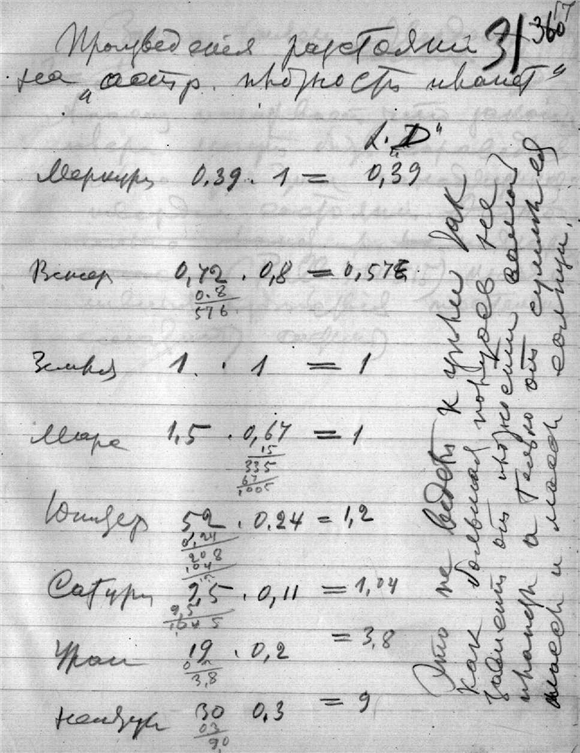 31 360
Произведения расстояний
на "астр. плотность планет"
L. "D"
Меркури 0,39 . 1 = 0,39
Венер 0,72 . 0,8 = 0,576
0.8
576
Земля 1 . 1 = 1
Марс 1,5 . 0,67 = 1
15
335
67
1,005
Юпитер 52 . 0.24 = 1,2
0,24
208
104
Сатурн 9,5 . 0,11 = 1,04
9,5
1,045
Уран 19 . 0,2 = 3,8
3,8
Нептун 30 0,3 = 9
03
90
Это не ведёт к цели так
как большая полуось не
зависит от плотности самой
планеты а только от суммы её
массы и массы солнца.